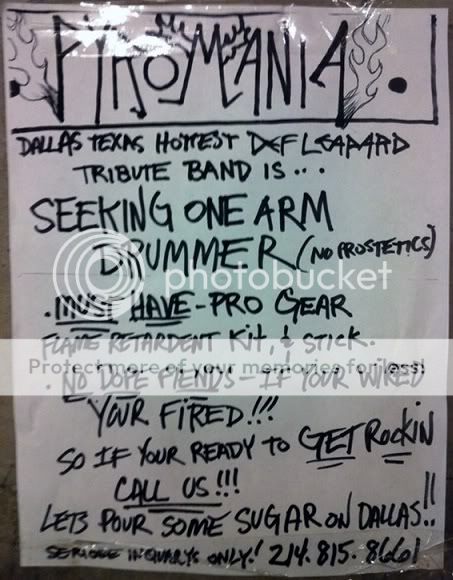 PYROMANIA
DALLAS TEXAS HOTTEST DEF LEAPARD
TRIBUTE BAND IS...
SEEKING ONE ARM
DRUMMER (NO PROSTETICS)
photobucket
. MUST HAVE - PRO GEAR
FLAME RETARDENT KIT, & STICK.
Protect more of your memories for less!
. NO DOPE FIENDS - IF YOUR WIRED
YOUR FIRED!!!
SO IF YOUR READY TO GET ROCKIN
CALL US!!!
LETS POUR SOME SUGAR ON DALLAS!!
SERIOUS INQUARYS ONLY! 214.815.8661